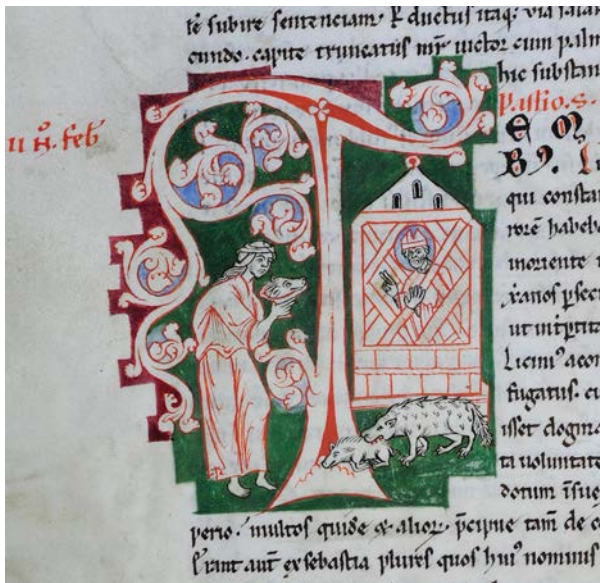 re subire sentenciam. Et ductus itaq; via salar
cundo. capite truncatus mr uictor cum palm
hic substan
Passio. S.
ii n. feb
TEM
B9. L
qui constan
rore habeb
moriente
xanos psec
ut inptita
Licini9 acon
fugatus. cu
isset dogma
ta uoluntate
dotum isue
perio. multos quide & alior. pcipue tam de c
erant aut ex sebastia plures quos hui9 nominis